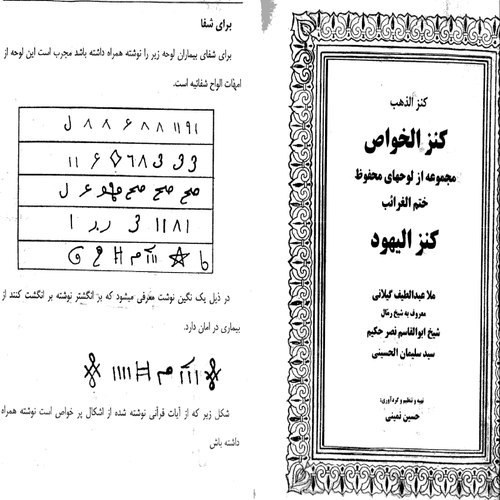 برای شفا
برای شفای بیماران لوحه زیر را نوشته همراه داشته باشد مجرب است این لوحه از
امهات الواح شفائیه است.
در ذیل یک نگین نوشت معرفی میشود که بر انگشتر نوشته بر انگشت کنند از
بیماری در امان دارد.
شکل زیر که از آیات قرآنی نوشته شده از اشکال پر خواص است نوشته همراه
داشته باش
کنز الذهب
کنز الخواص
مجموعه از لوحهای محفوظ
ختم الغرائب
کنز الیهود
ملا عبدالطیف گیلانی
معروف به شیخ رمال
شیخ ابوالقاسم نصر حکیم
سید سلیمان الحسینی
تهیه و تنظیم و گردآوری:
حسین نمینی